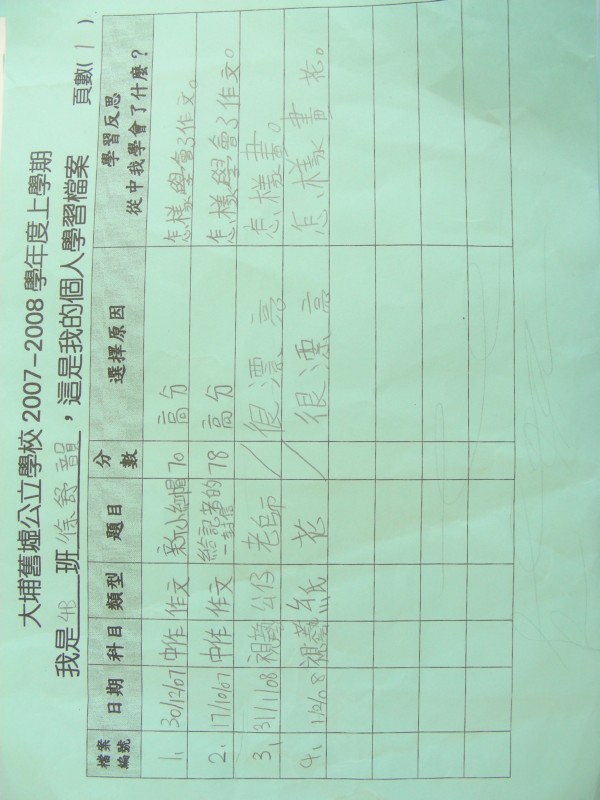 大埔舊墟公立學校 2007-2008 學年度上學期
我是 4B 班 徐舒韻 ，這是我的個人學習檔案 頁數( 1 )
檔案編號 日期 科目 類型 題目 分數 選擇原因 學習反思 從中我學會了什麼？
1. 30/12/07 中作 作文 新小紅帽 70 高分 怎樣學會了作文。
2. 17/10/07 中作 作文 給記者的一封信 78 高分 怎樣學會了作文。
3. 31/1/08 視藝 公仔 老師 / 很漂亮 怎樣畫。
4. 1/2/08 視藝 紙 花 / 很漂亮 怎樣畫花。